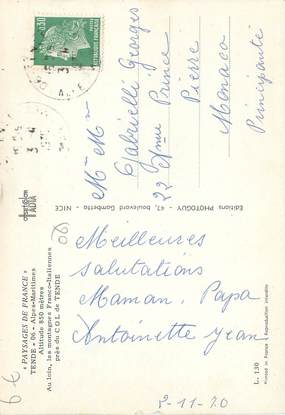 Meilleures
salutations
Maman. Papa
Antoinette Jean
2-11-70
Mr Mme
Gabrielli Georges
22 Prince
Pierre
Monaco
Principauté
0,30
« PAYSAGES DE FRANCE »
TENDE - 06 - Alpes-Maritimes
Altitude 850 mètres
Au loin, les montagnes Franco-Italiennes
près du COL de TENDE
Editions PHOTOGUY - 47, boulevard Gambetta - NICE
L. 130
Printed in France - Reproduction interdite
06
6 €